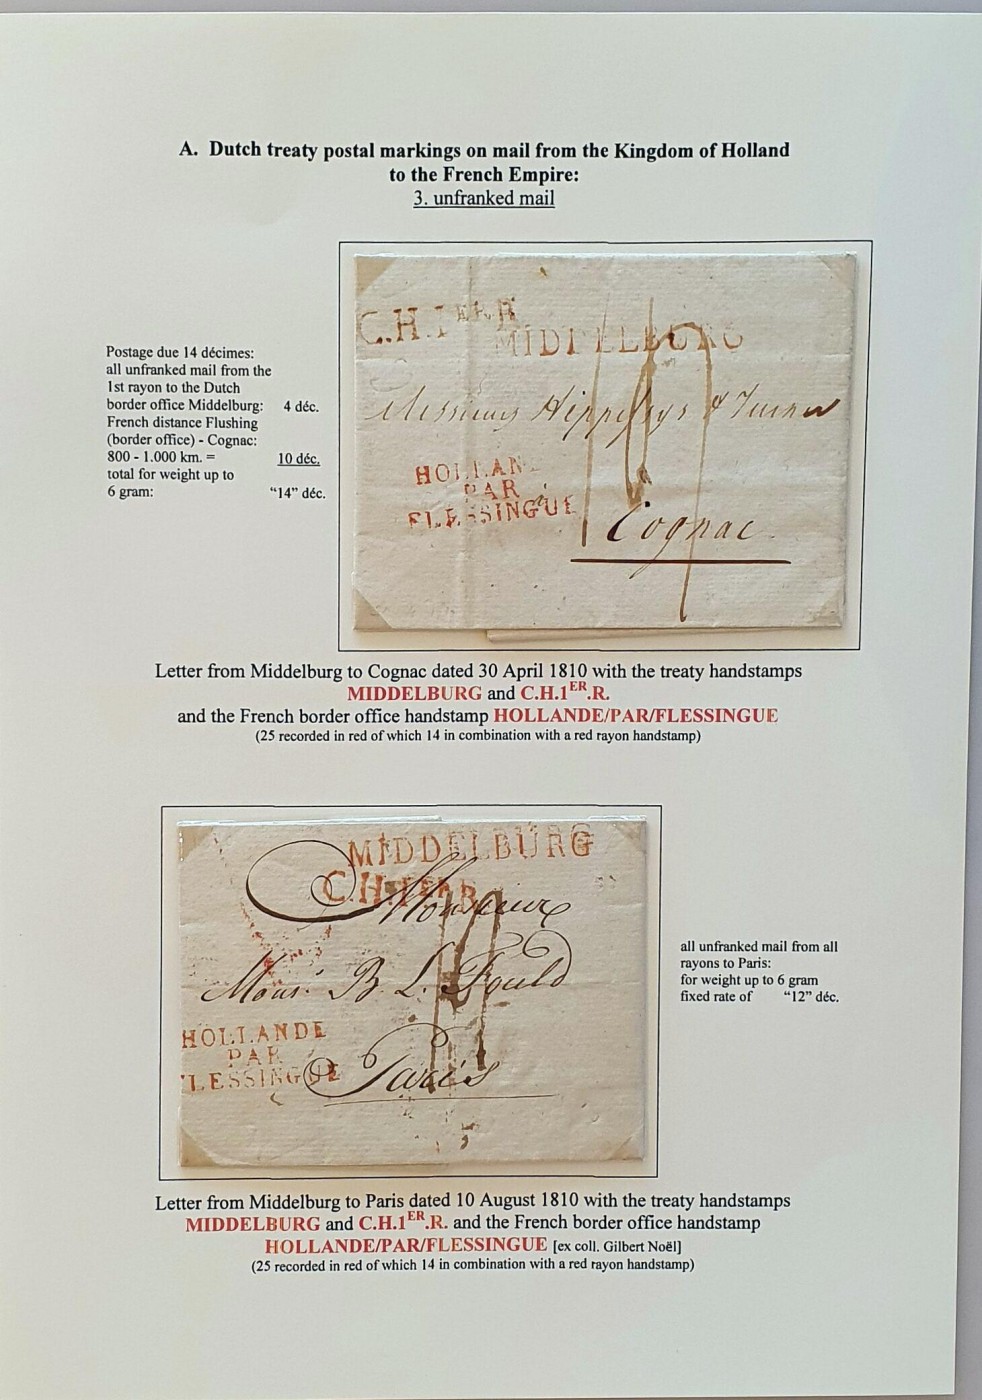 A. Dutch treaty postal markings on mail from the Kingdom of Holland
to the French Empire:
3. unfranked mail
Postage due 14 décimes:
all unfranked mail from the
1st rayon to the Dutch
border office Middelburg: 4 déc.
French distance Flushing
(border office) - Cognac:
800 - 1.000 km. = 10 déc.
total for weight up to
6 gram: “14” déc.
C.H.1ER R
MIDDELBURG
Messieurs Hippelsys & Turner
HOLLAN
PAR
FLESSINGUE
Cognac
14
Letter from Middelburg to Cognac dated 30 April 1810 with the treaty handstamps
MIDDELBURG and C.H.1ER.R.
and the French border office handstamp HOLLANDE/PAR/FLESSINGUE
(25 recorded in red of which 14 in combination with a red rayon handstamp)
MIDDELBURG
C.H.1ER R
Monsieur
Mons. B. L. Fould
HOLLANDE
PAR
FLESSINGUE
Paris
all unfranked mail from all
rayons to Paris:
for weight up to 6 gram
fixed rate of “12” déc.
Letter from Middelburg to Paris dated 10 August 1810 with the treaty handstamps
MIDDELBURG and C.H.1ER.R. and the French border office handstamp
HOLLANDE/PAR/FLESSINGUE [ex coll. Gilbert Noël]
(25 recorded in red of which 14 in combination with a red rayon handstamp)